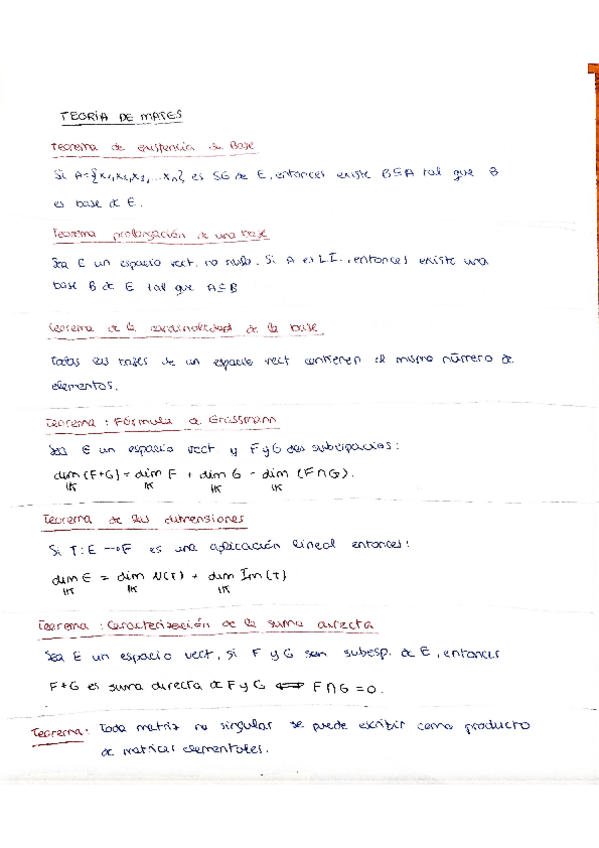 TEORIA DE MATES
Teorema de existencia de Base
Si A={x₁,x₂,x₃,...xₙ} es SG de E, entonces existe B⊆A tal que B
es base de E.
Teorema prolongación de una base
Sea E un espacio vect. no nulo. Si A es LI., entonces existe una
base B de E tal que A⊆B
Teorema de la cardinalidad de la base.
Todas las bases de un espacio vect contienen el mismo número de
elementos.
Teorema: Fórmula de Grassmann
Sea E un espacio vect y F y G dos subespacios:
dim (F+G) = dim F + dim G - dim (F∩G).
IK IK IK IK
Teorema de las dimensiones
Si T: E → F es una aplicación lineal entonces:
dim E = dim N(T) + dim Im(T)
IK IK IK
Teorema: Caracterización de la suma directa
Sea E un espacio vect, si F y G son subesp. de E, entonces
F+G es suma directa de F y G ⟺ F∩G = 0.
Teorema: Toda matriz no singular se puede escribir como producto
de matrices elementales.